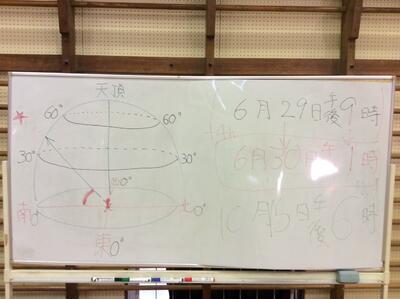 天頂
60° 60°
30° 30°
0°
南0° 北0°
東0°
6月29日午後9時
6月30日午 1時
10月15日午後6時